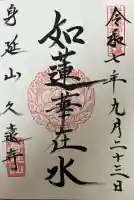 令和七年九月二十三日
如蓮華在水
身延山久遠寺